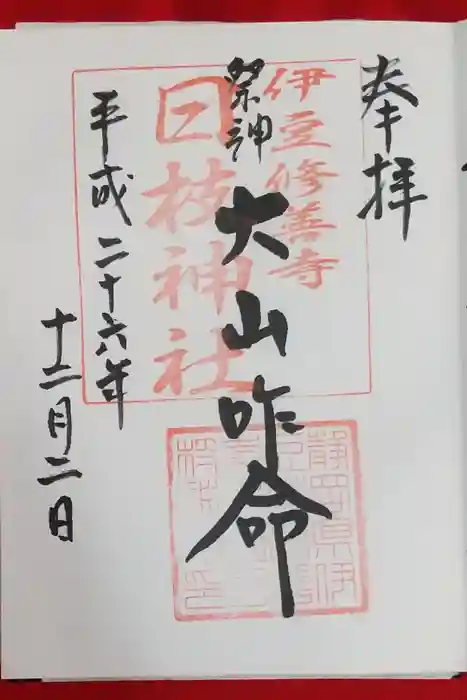 奉拝
伊豆修善寺
日枝神社
祭神
大山咋命
平成二十六年
十二月二日
静岡県伊